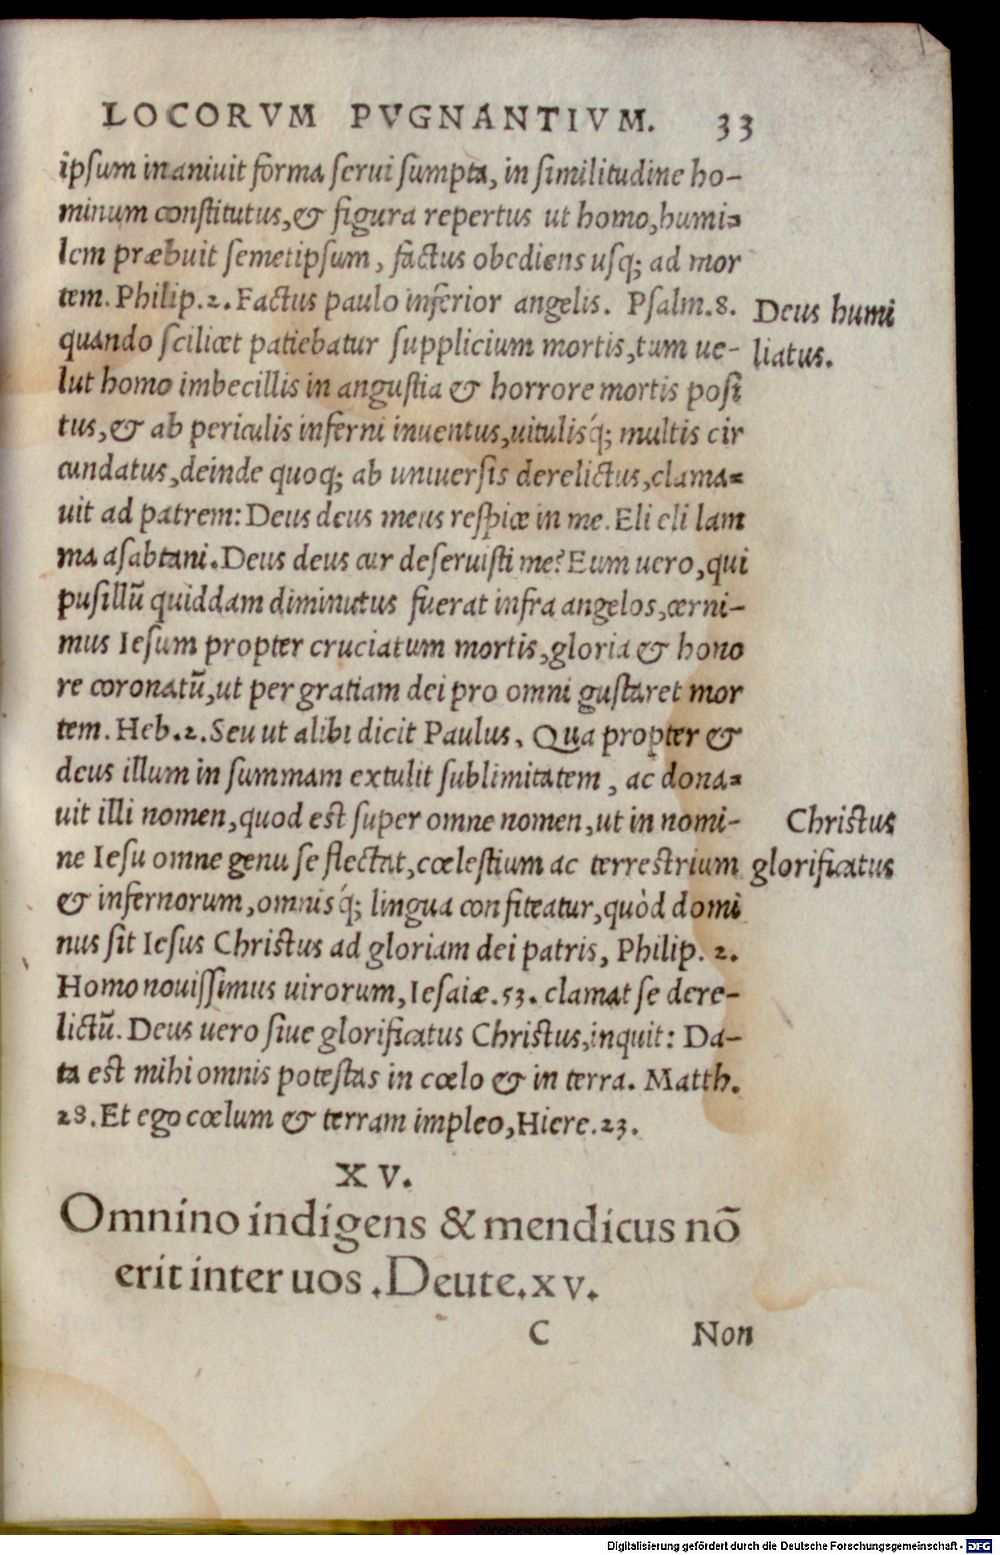 LOCORVM PVGNANTIVM. 33
ipsum inaniuit forma serui sumpta, in similitudine ho-
minum constitutus, & figura repertus ut homo, humi-
lem præbuit semetipsum, factus obediens usq; ad mor
tem. Philip. 2. Factus paulo inferior angelis. Psalm. 8.
Deus humi
quando scilicet patiebatur supplicium mortis, tum ue-
liatus.
lut homo imbecillis in angustia & horrore mortis posi
tus, & ab periculis inferni inuentus, uitulisq́; multis cir
cundatus, deinde quoq; ab uniuersis derelictus, clama-
uit ad patrem: Deus deus meus respice in me. Eli eli lam
ma asabtani. Deus deus cur deseruisti me? Eum uero, qui
pusillū quiddam diminutus fuerat infra angelos, cerni-
mus Iesum propter cruciatum mortis, gloria & hono
re coronatū, ut per gratiam dei pro omni gustaret mor
tem. Heb. 2. Seu ut alibi dicit Paulus, Qua propter &
deus illum in summam extulit sublimitatem, ac dona-
uit illi nomen, quod est super omne nomen, ut in nomi-
Christus
ne Iesu omne genu se flectat, cœlestium ac terrestrium
glorificatus
& infernorum, omnisq́; lingua confiteatur, quòd domi
nus sit Iesus Christus ad gloriam dei patris, Philip. 2.
Homo nouissimus uirorum, Iesaiæ. 53. clamat se dere-
lictū. Deus uero siue glorificatus Christus, inquit: Da-
ta est mihi omnis potestas in cœlo & in terra. Matth.
28. Et ego cœlum & terram impleo, Hiere. 23.
XV.
Omnino indigens & mendicus nō
erit inter uos. Deute. xv.
C Non
Digitalisierung gefördert durch die Deutsche Forschungsgemeinschaft - DFG